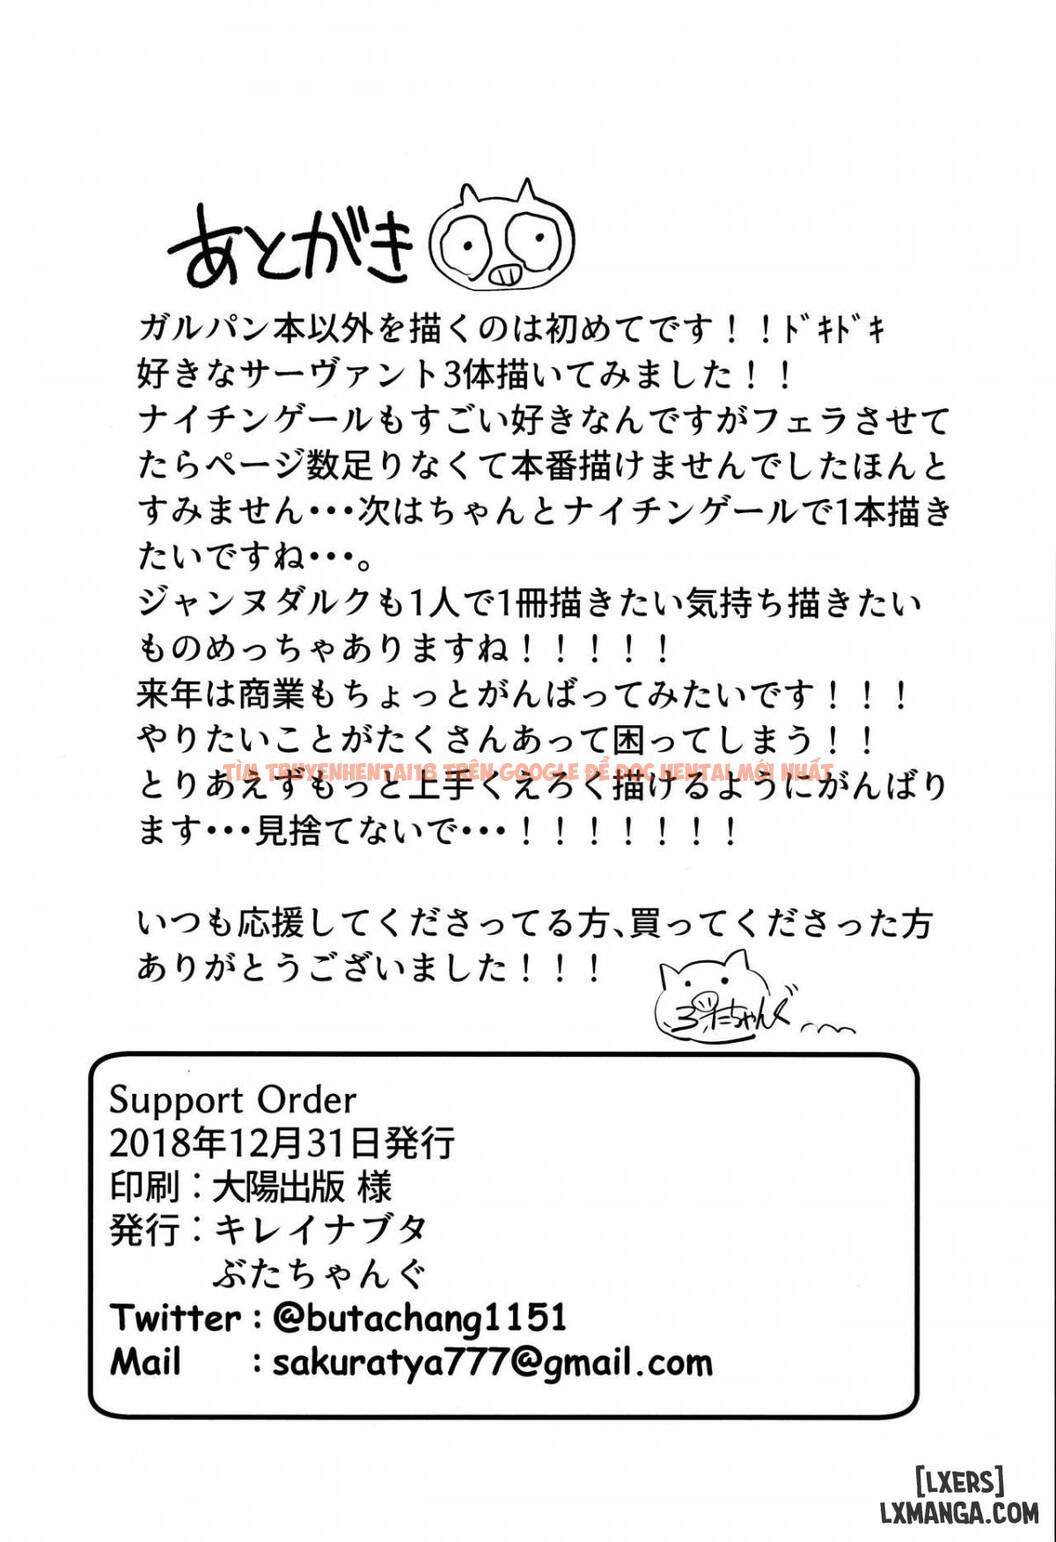 あとがき
ガルパン本以外を描くのは初めてです！！ﾄﾞｷﾄﾞｷ
好きなサーヴァント3体描いてみました！！
ナイチンゲールもすごい好きなんですがフェラさせて
たらページ数足りなくて本番描けませんでしたほんと
すみません・・・次はちゃんとナイチンゲールで1本描き
たいですね・・・。
ジャンヌダルクも1人で1冊描きたい気持ち描きたい
ものめっちゃありますね！！！！！
来年は商業もちょっとがんばってみたいです！！！
やりたいことがたくさんあって困ってしまう！！
TÌM TRUYENHENTAI18 TRÊN GOOGLE ĐỂ ĐỌC HENTAI MỚI NHẤT
とりあえずもっと上手くえろく描けるようにがんばり
ます・・・見捨てないで・・・！！！！！！！
いつも応援してくださってる方、買ってくださった方
ありがとうございました！！！
ぶたちゃんぐ
Support Order
2018年12月31日発行
印刷：大陽出版 様
発行：キレイナブタ
ぶたちゃんぐ
Twitter : @butachang1151
Mail : sakuratya777@gmail.com
[LXERS]
LXMANGA.COM